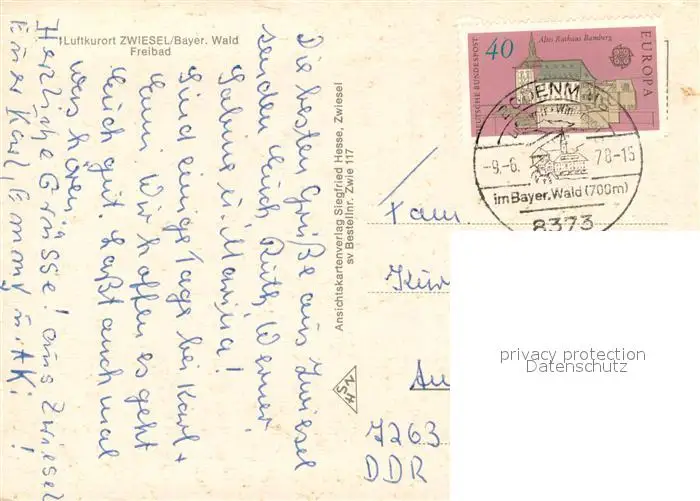 Luftkurort ZWIESEL/Bayer. Wald
Freibad
Die besten Grüße aus Zwiesel
senden Euch Ruth, Werner,
Sabine u. Marina!
Sind einige Tage bei Karl +
Wir hoffen es geht
Euch gut. Laßt auch mal
was hören.
Herzliche Grüsse! aus Zwiesel
Eurer Karl, Emmy
Ansichtskartenverlag Siegfried Hesse, Zwiesel
sv Bestellnr. Zwie 117
HSN
40
DEUTSCHE BUNDESPOST
Altes Rathaus Bamberg
EUROPA
BODENMAIS
-9.-6.
78-15
im Bayer. Wald (700m)
8373
Fam.
7263
DDR
privacy protection
Datenschutz